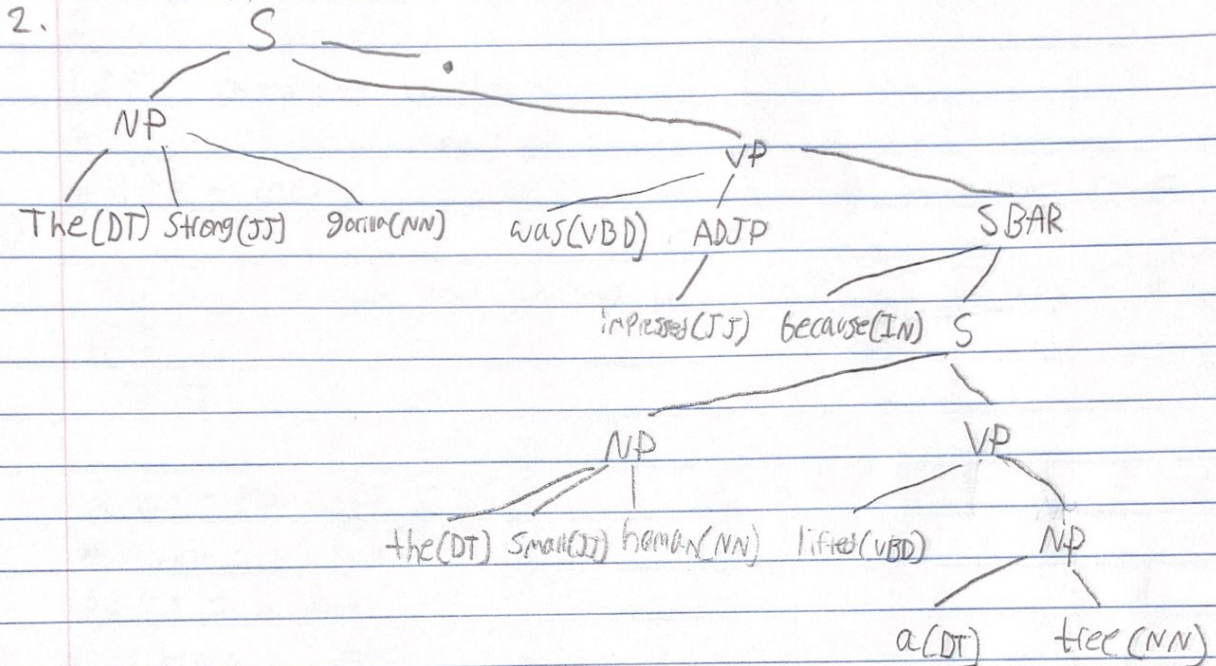 2.
S
.
NP
VP
The(DT) Strong(JJ) gorilla(NN) was(VBD) ADJP SBAR
impressed(JJ) because(IN) S
NP VP
the(DT) small(JJ) human(NN) lifted(VBD) NP
a(DT) tree(NN)